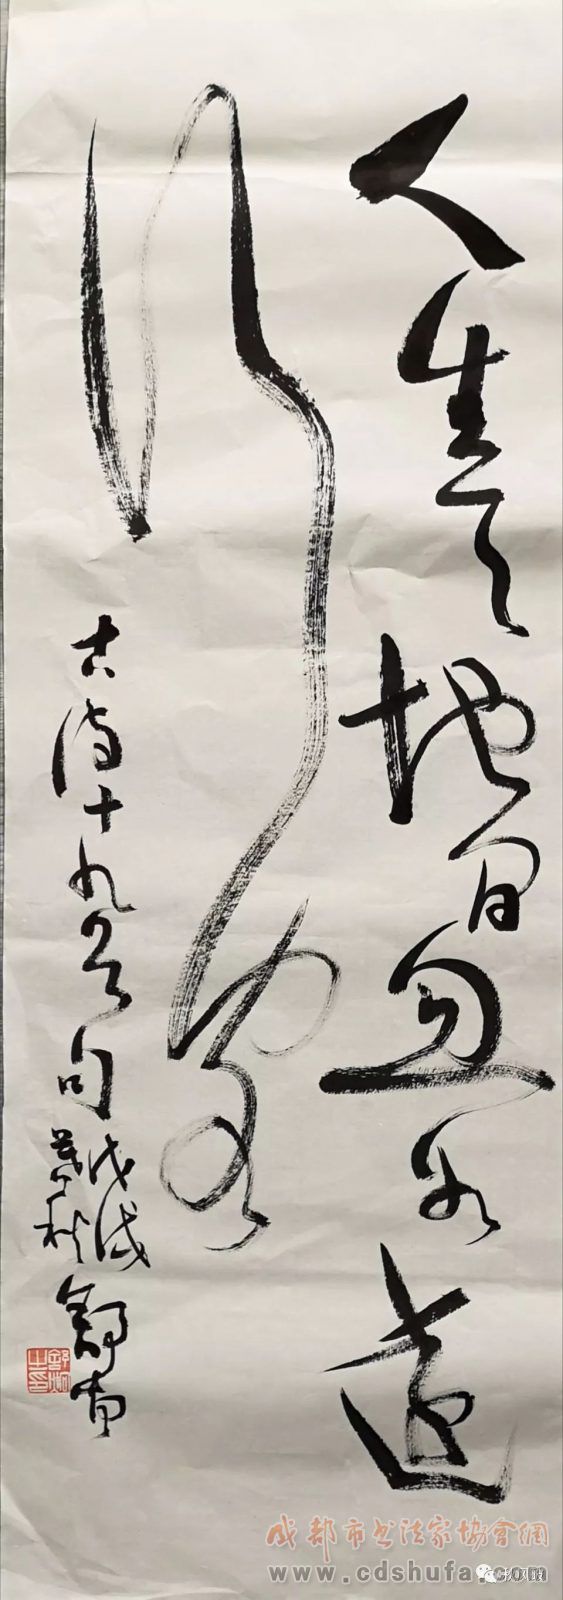 人生天地间忽如远
行客
古诗十九首句
戊戌
暮秋
舒炯
舒炯之印
成都市书法家协会网
www.cdshufa.com